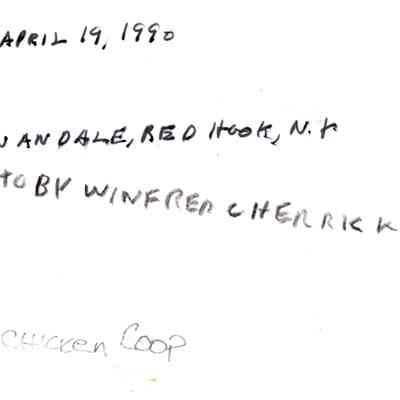 APRIL 19, 1990
NANDALE, RED HOOK, N.Y
TO BY WINFRED CHERRICK
CHICKEN COOP